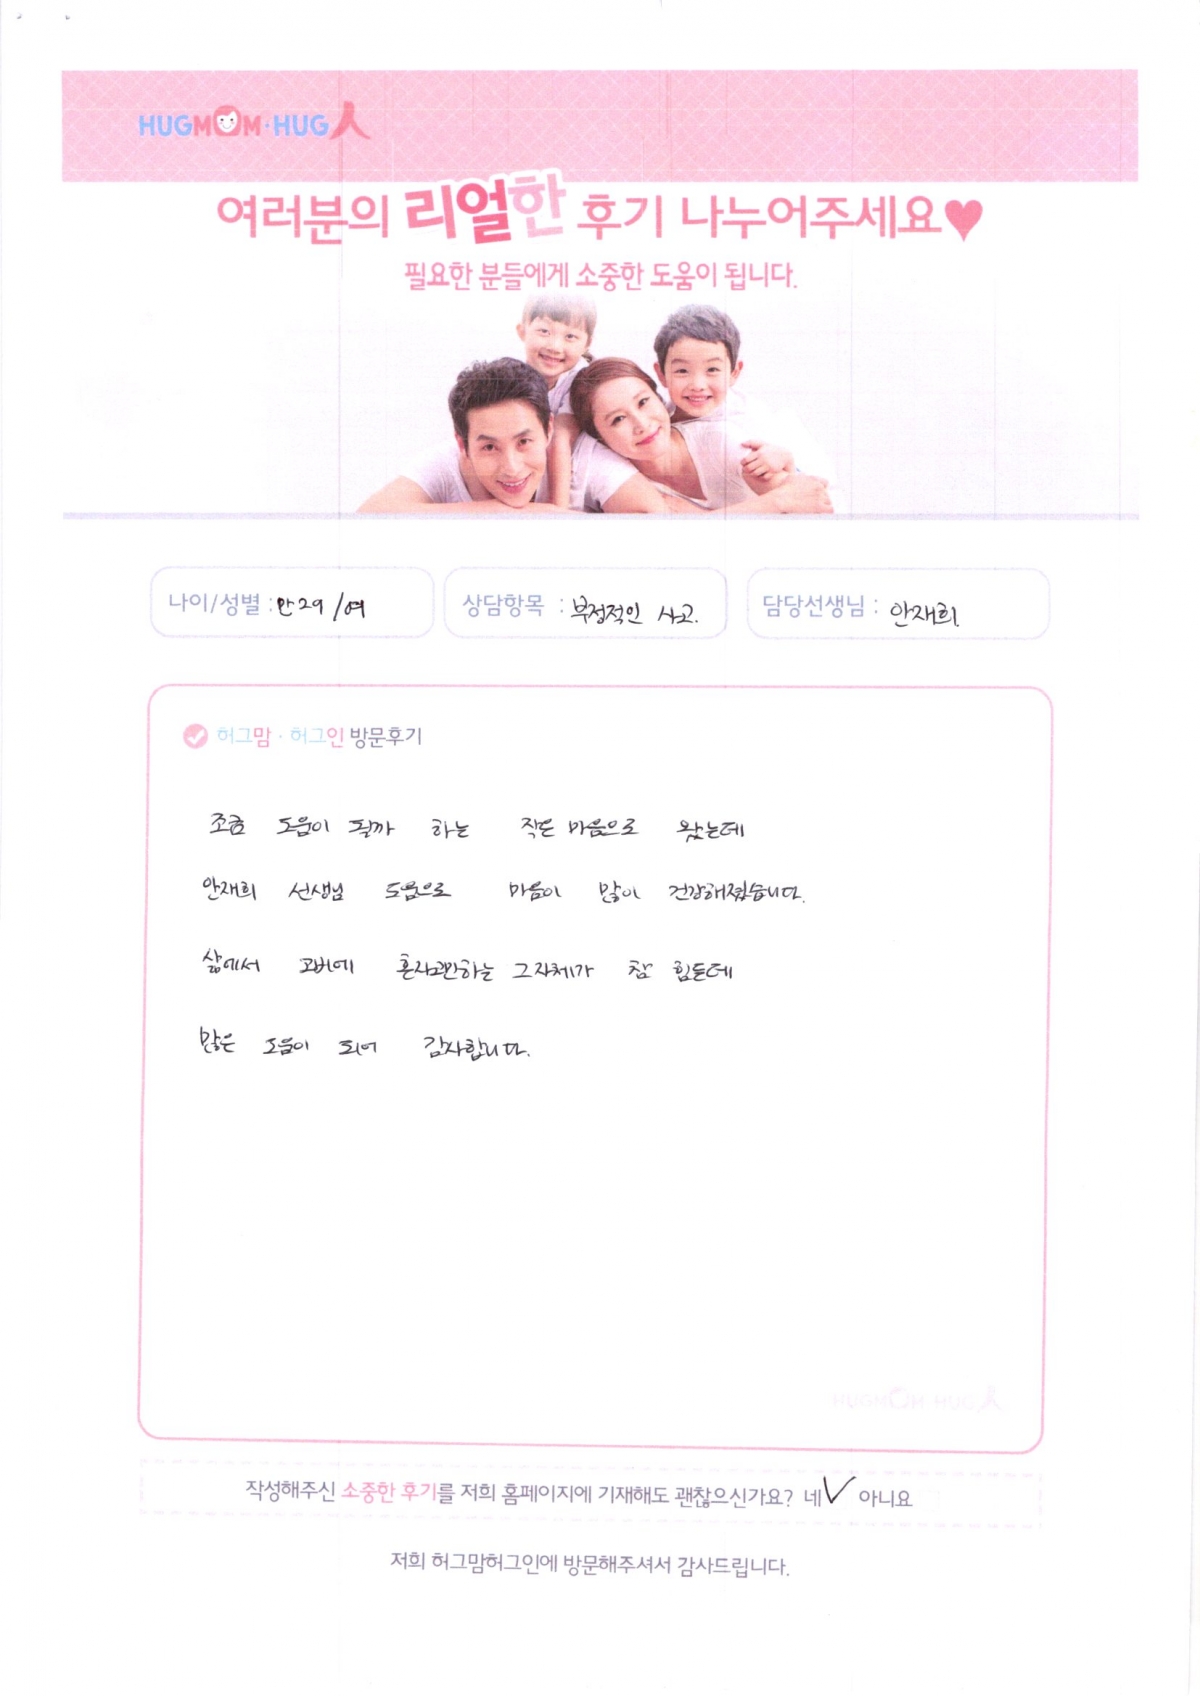 HUGMOM·HUG人
여러분의 리얼한 후기 나누어주세요♥
필요한 분들에게 소중한 도움이 됩니다.
나이/성별 : 만29 /여
상담항목 : 부정적인 사고.
담당선생님 : 안재희.
허그맘·허그인 방문후기
조금 도움이 될까 하는 작은 마음으로 왔는데
안재희 선생님 도움으로 마음이 많이 건강해졌습니다.
삶에서 고비에 혼자고민하는 그자체가 참 힘든데
많은 도움이 되어 감사합니다.
HUGMOM·HUG人
작성해주신 소중한 후기를 저희 홈페이지에 기재해도 괜찮으신가요? 네✓ 아니요
저희 허그맘허그인에 방문해주셔서 감사드립니다.